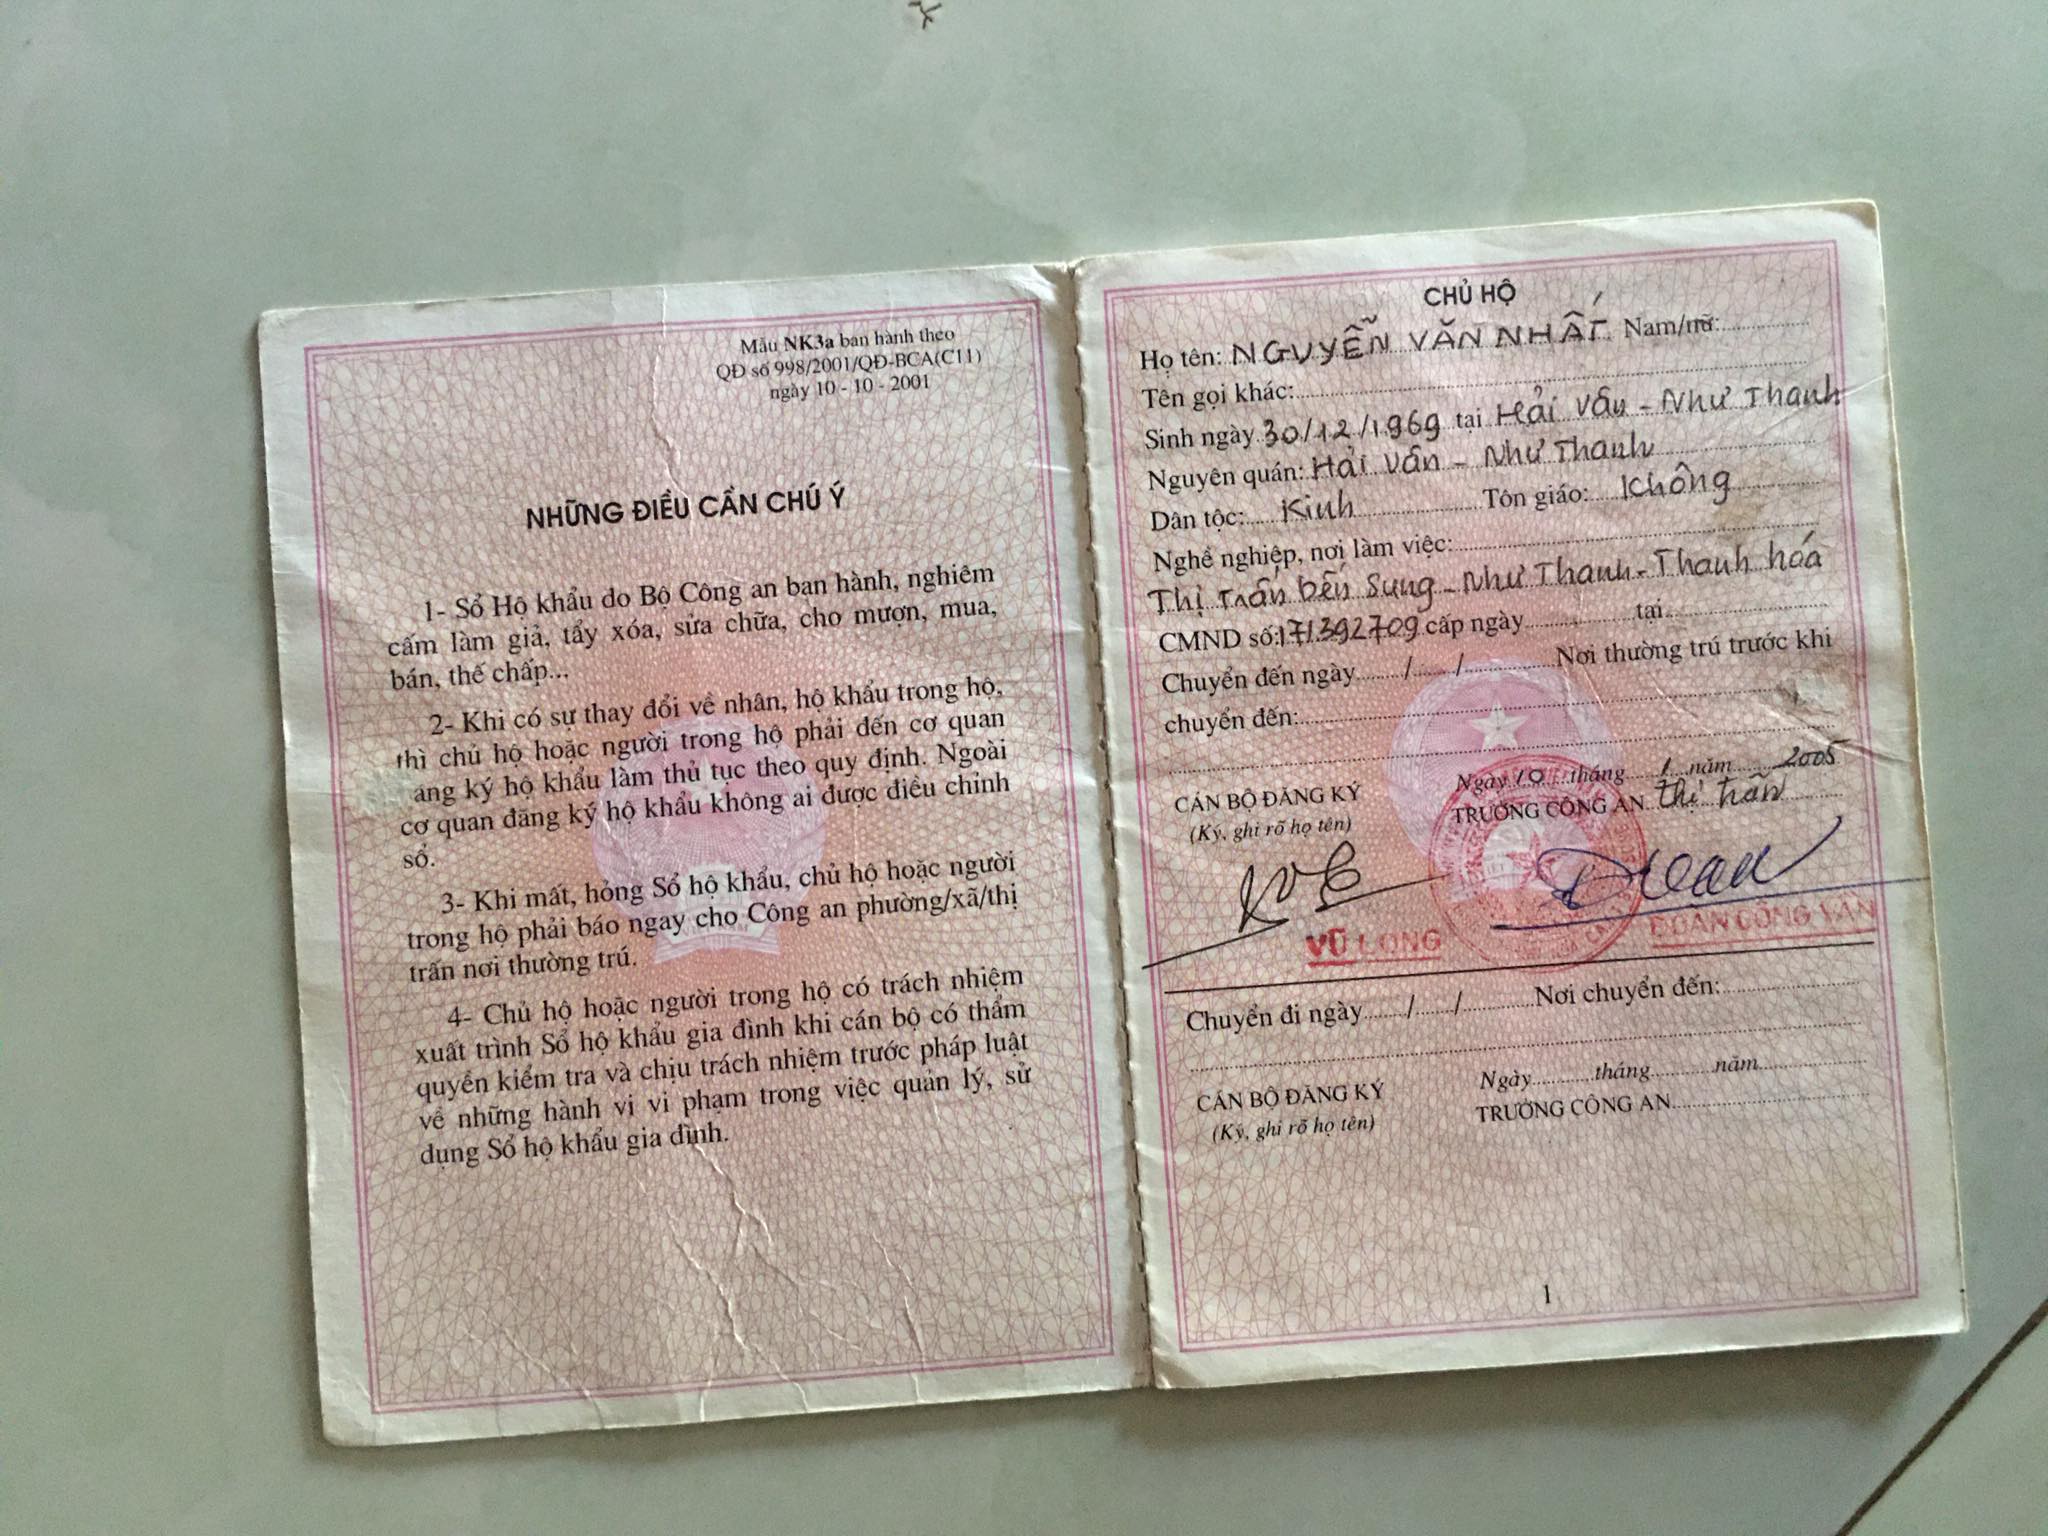 Mẫu NK3a ban hành theo
QĐ số 998/2001/QĐ-BCA(C11)
ngày 10 - 10 - 2001
NHỮNG ĐIỀU CẦN CHÚ Ý
1- Sổ Hộ khẩu do Bộ Công an ban hành, nghiêm
cấm làm giả, tẩy xóa, sửa chữa, cho mượn, mua,
bán, thế chấp...
2- Khi có sự thay đổi về nhân, hộ khẩu trong hộ,
thì chủ hộ hoặc người trong hộ phải đến cơ quan
ang ký hộ khẩu làm thủ tục theo quy định. Ngoài
cơ quan đăng ký hộ khẩu không ai được điều chỉnh
sổ.
3- Khi mất, hỏng Sổ hộ khẩu, chủ hộ hoặc người
trong hộ phải báo ngay cho Công an phường/xã/thị
trấn nơi thường trú.
4- Chủ hộ hoặc người trong hộ có trách nhiệm
xuất trình Sổ hộ khẩu gia đình khi cán bộ có thẩm
quyền kiểm tra và chịu trách nhiệm trước pháp luật
về những hành vi vi phạm trong việc quản lý, sử
dụng Sổ hộ khẩu gia đình.
CHỦ HỘ
Họ tên: NGUYỄN VĂN NHẤT Nam/nữ:
Tên gọi khác:
Sinh ngày 30/12/1969 tại Hải Vân - Như Thanh
Nguyên quán: Hải Vân - Như Thanh
Dân tộc: Kinh Tôn giáo: Không
Nghề nghiệp, nơi làm việc:
Thị trấn bến Sung - Như Thanh - Thanh hóa
CMND số: 171392709 cấp ngày tại
Chuyển đến ngày / / Nơi thường trú trước khi
chuyển đến:
Ngày 10 tháng 1 năm 2005
CÁN BỘ ĐĂNG KÝ TRƯỞNG CÔNG AN Thị trấn
(Ký, ghi rõ họ tên)
VŨ LONG ĐOÀN CÔNG VÂN
Chuyển đi ngày / / Nơi chuyển đến:
Ngày tháng năm
CÁN BỘ ĐĂNG KÝ TRƯỞNG CÔNG AN
(Ký, ghi rõ họ tên)
1